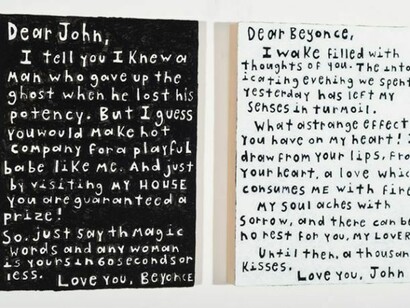 Dear John,
I tell you I Knew a
man who gave up the
ghost when he lost his
potency. But I guess
you would make hot
company for a playful
babe like me. And just
by visiting my HOUSE
you are guaranteed a
prize!
So, just say th magic
words and any woman
is yours in 60 seconds or
less. Love you, Beyonce
Dear Beyonce,
I wake filled with
thoughts of you. The into
icating evening we spent
yesterday has left my
senses in turmoil.
What a strange effect
you have on my heart! I
draw from your lips, From
your heart, a love which
consumes ME with fire
my soul aches with
sorrow, and there can be
no rest for you, my LOVER
Until then, a thousan
kisses.
Love you, John